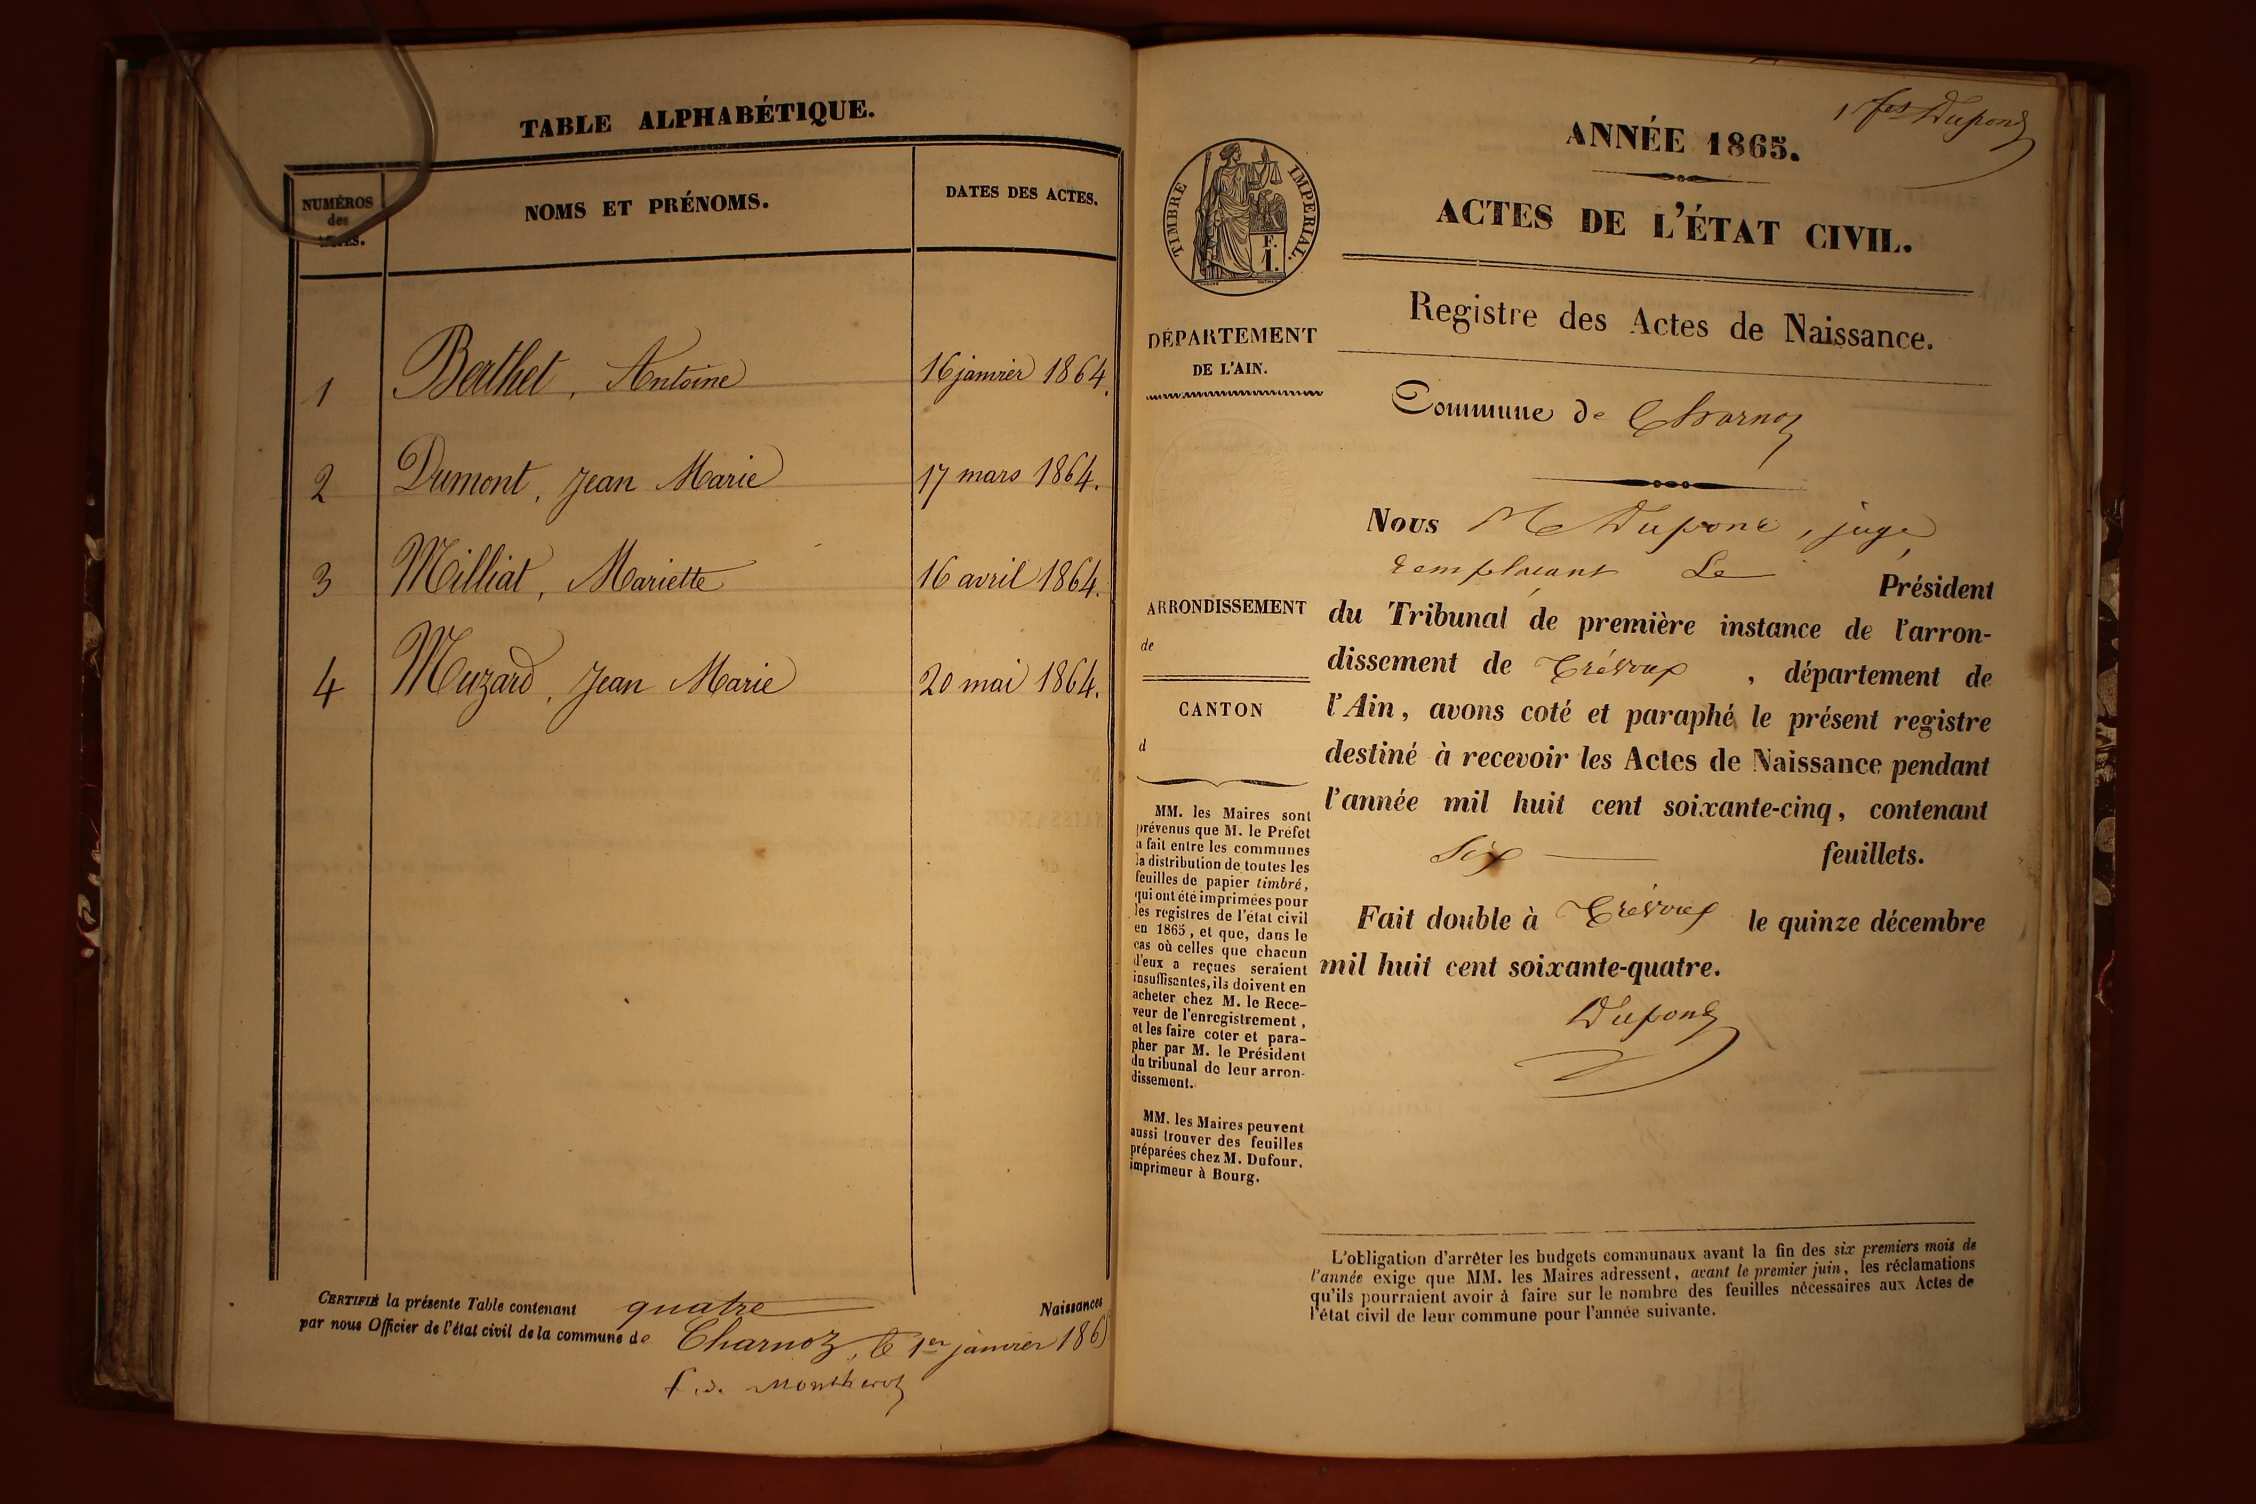 TABLE ALPHABÉTIQUE.
NUMÉROS
des
ACTES.
NOMS ET PRÉNOMS.
DATES DES ACTES.
1 Berthet, Antoine 16 janvier 1864.
2 Dumont, Jean Marie 17 mars 1864.
3 Milliat, Mariette 16 avril 1864.
4 Muzard, Jean Marie 20 mai 1864.
CERTIFIÉ la présente Table contenant quatre Naissances
par nous Officier de l'état civil de la commune de Charnoz, le 1er janvier 1865
f. de Montherot
1 fet Dupond
ANNÉE 1865.
ACTES DE L'ÉTAT CIVIL.
Registre des Actes de Naissance.
Commune de Charnoz
TIMBRE IMPERIAL.
F.
1.
DÉPARTEMENT
DE L'AIN.
ARRONDISSEMENT
de
CANTON
d
MM. les Maires sont
prévenus que M. le Préfet
a fait entre les communes
la distribution de toutes les
feuilles de papier timbré,
qui ont été imprimées pour
les registres de l'état civil
en 1865, et que, dans le
cas où celles que chacun
d'eux a reçues seraient
insuffisantes, ils doivent en
acheter chez M. le Rece-
veur de l'enregistrement,
et les faire coter et para-
pher par M. le Président
du tribunal de leur arron-
dissement.
MM. les Maires peuvent
aussi trouver des feuilles
préparées chez M. Dufour,
imprimeur à Bourg.
Nous M Dupond, juge,
remplaçant Le Président
du Tribunal de première instance de l'arron-
dissement de Trévoux, département de
l'Ain, avons coté et paraphé le présent registre
destiné à recevoir les Actes de Naissance pendant
l'année mil huit cent soixante-cinq, contenant
Six feuillets.
Fait double à Trévoux le quinze décembre
mil huit cent soixante-quatre.
Dupond
L'obligation d'arrêter les budgets communaux avant la fin des six premiers mois de
l'année exige que MM. les Maires adressent, avant le premier juin, les réclamations
qu'ils pourraient avoir à faire sur le nombre des feuilles nécessaires aux Actes de
l'état civil de leur commune pour l'année suivante.